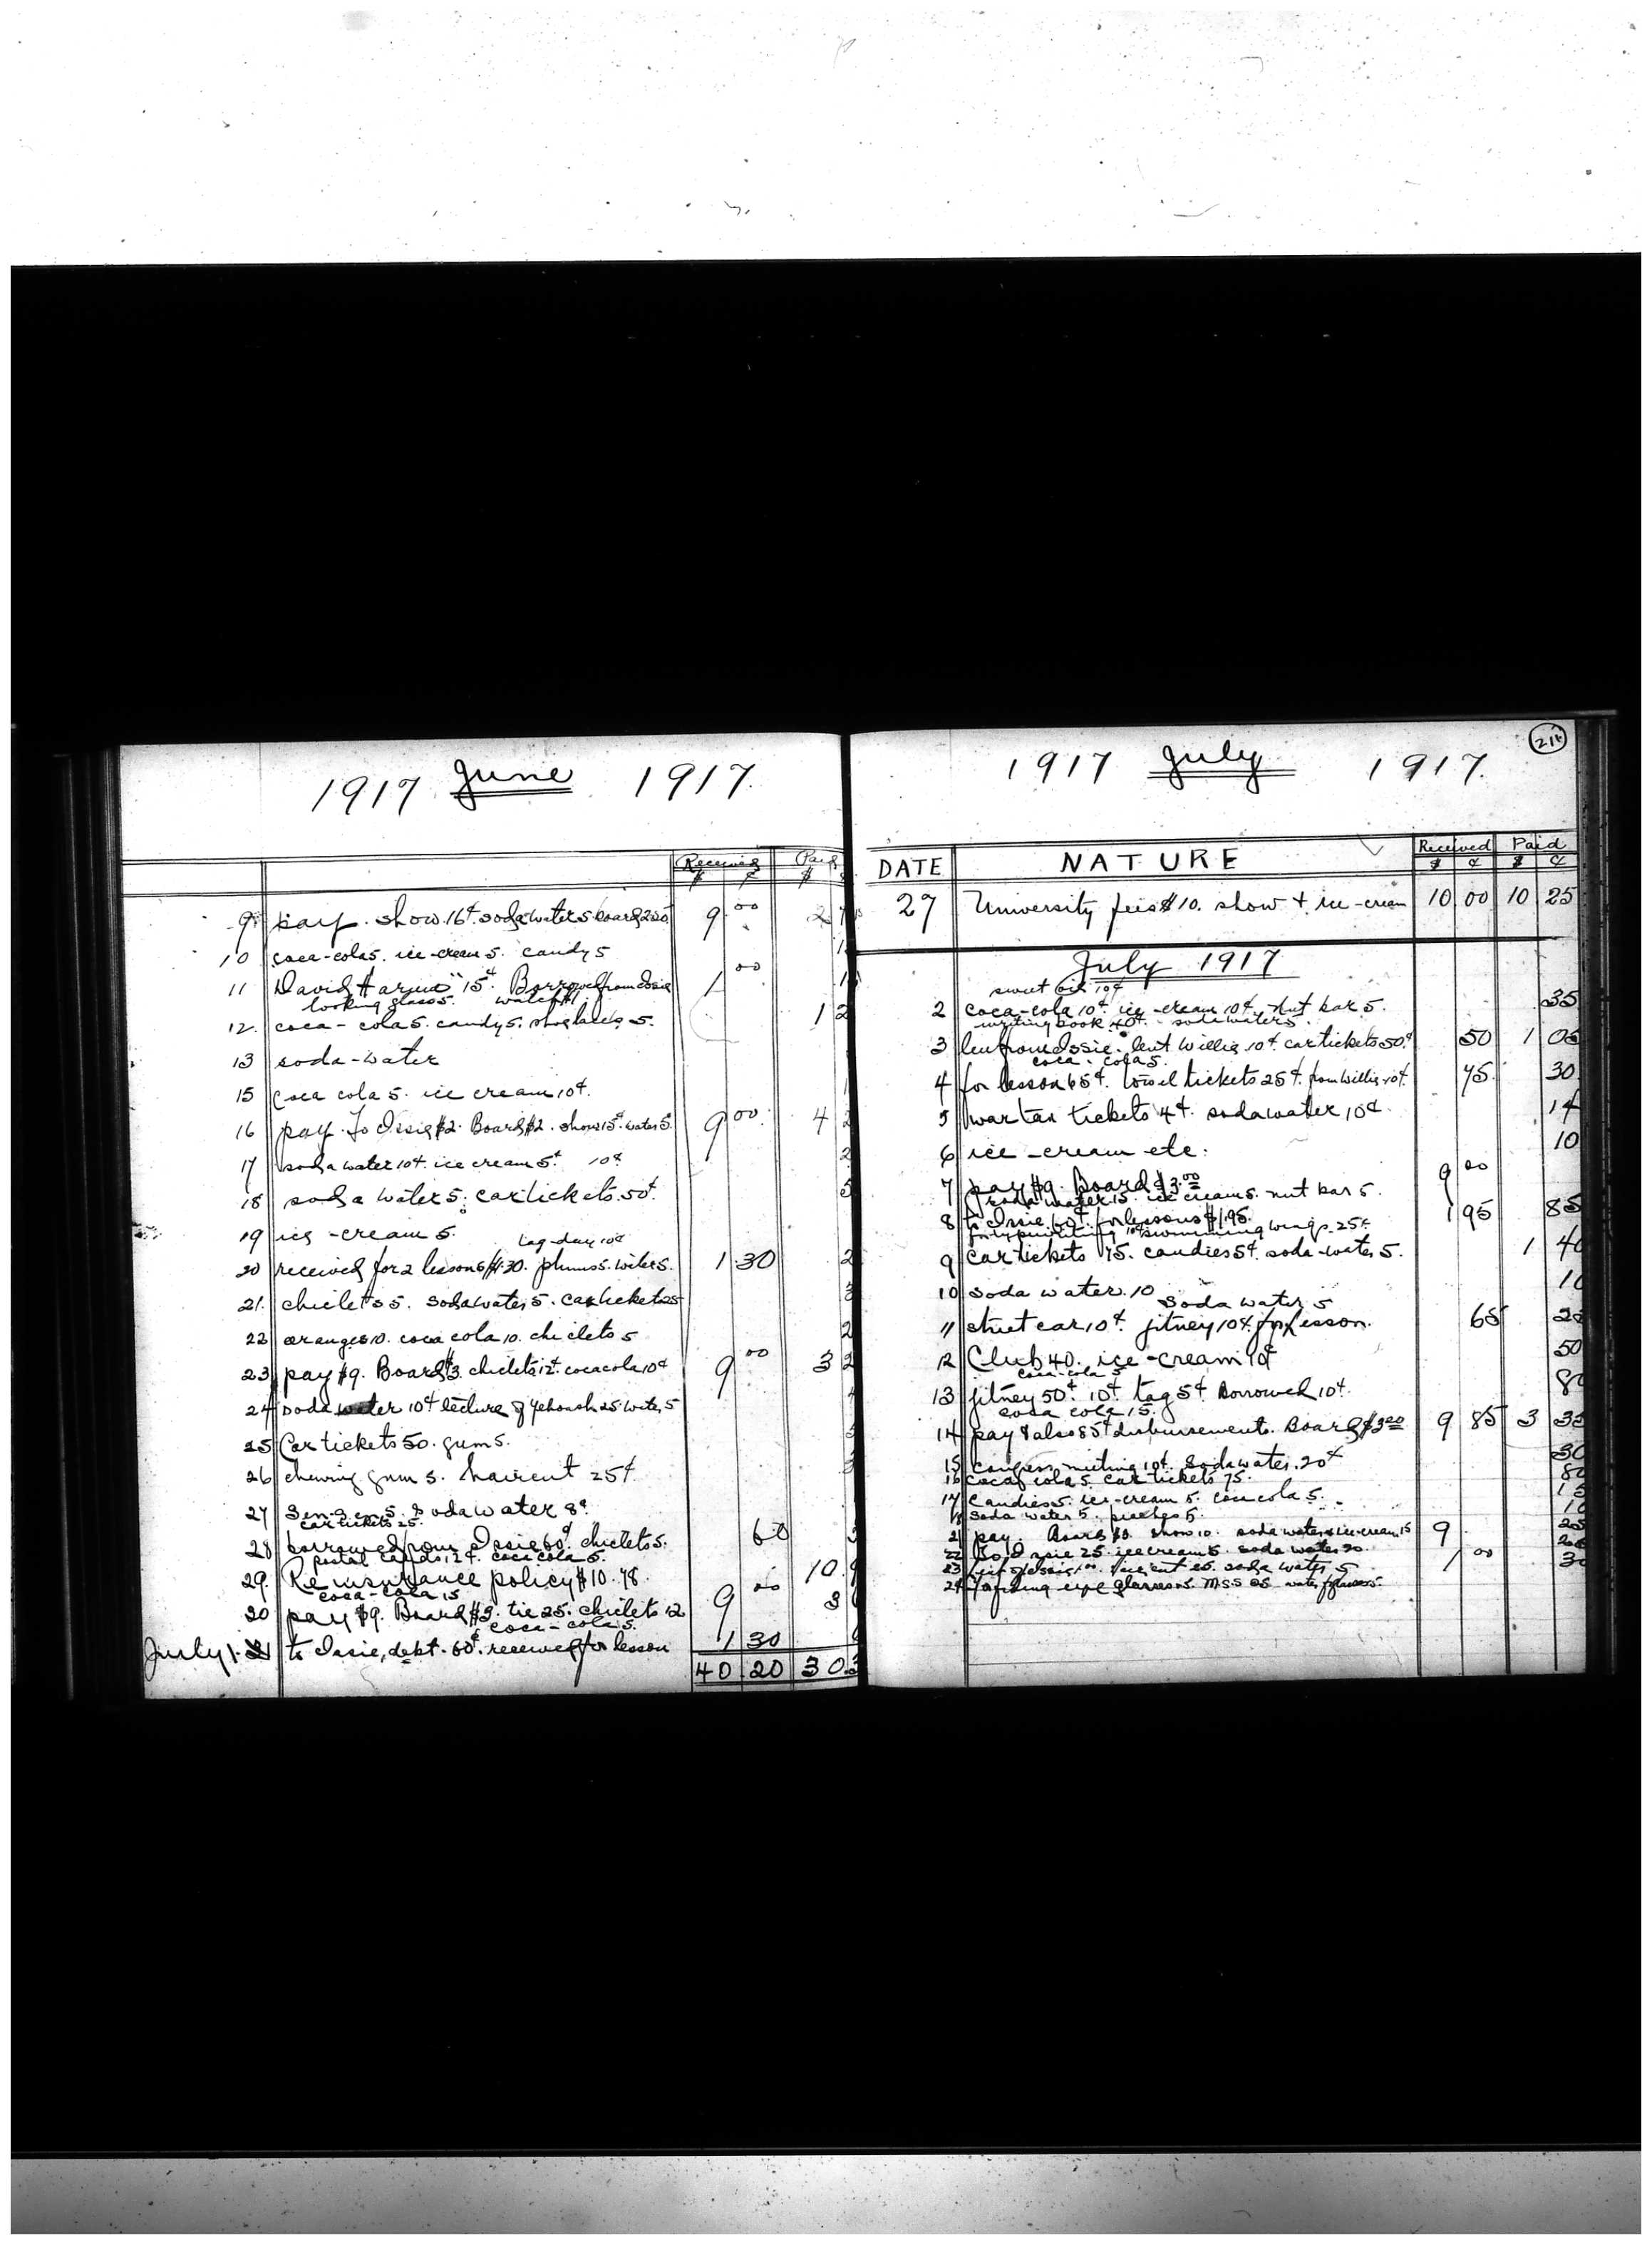 1917 June 1917.
Received Paid
$ ¢ $
9 pay. show 16¢. soda water 5 board 2.00 9 00 2
10 coca-cola 5. ice-cream 5. candy 5
11 "David Harum" 15¢. Borrowed from Issie 1 00
looking glass 5. watch $1.
12. coca-cola 5. candy 5. shoe laces 5. 1 2
13 soda-water
15 coca cola 5. ice cream 10¢.
16 pay. To Issie $2. Board $2. show 15¢. water 5. 9 00 4
17 soda water 10¢. ice cream 5¢. 10¢
18 soda water 5. car tickets 50¢.
19 ice-cream 5.
tag-day 10¢
20 received for 2 lessons $1.30. plums 5. water 5. 1 30 2
21. chiclets 5. soda water 5. car tickets 25
22 oranges 10. coca cola 10. chiclets 5 2
23 pay $9. Board $3. chiclets 12¢. coca cola 10¢ 9 00 3 2
24 soda water 10¢ lecture of Yehoash 25. water 5
25 Car tickets 50. gum 5.
26 chewing gum 5. haircut 25¢.
27 Sen-Sen 5. Soda water 8¢
car tickets 25.
28 borrowed from Issie 60¢. chiclets 5. 60
postal cards 12¢. coca cola 5.
29. Re insurance policy $10.78. 10.9
coca-cola 15
30 pay $9. Board $3. tie 25. chiclets 12 9 00 3
coca-cola 5.
July 1. to Issie, debt. 60¢. received for lesson 1 30
40 20 30.3
1917 July 1917.
214
DATE NATURE Received Paid
$ ¢ $ ¢
27 University fees $10. show & ice-cream 10 00 10 25
July 1917
sweet 10¢
2 coca-cola 10¢. ice-cream 10¢. Nut bar 5. 35
writing book 40¢. soda water 5.
3 from Issie. lent Willie 10¢. car tickets 50¢ 50 1 05
coca-cola 5.
4 for lesson 65¢. towel tickets 25¢. from Willie 10¢. 75. 30
5 war tax tickets 4¢. soda water 10¢. 14
6 ice-cream etc. 10
7 pay $9. Board $3.00 9 00
soda water 15. ice cream 5. nut bar 5.
8 to Issie 60¢. for lessons $1.95. 1 95 85
10¢ swimming wings 25¢
9 car tickets 75. candies 5¢. soda-water 5. 1 40
10 soda water. 10 10
soda water 5
11 street car 10¢. jitney 10¢. for lesson. 65
12 Club 40. ice-cream 10¢ 50
coca-cola 5
13 jitney 50¢. 10¢. tag 5¢. Borrowed 10¢. 80
coca cola 15.
14 pay & also 85¢ disbursements. Board $3.00 9 85 3
15 Congress meeting 10¢. Soda water. 20¢ 30
16 coca cola 5. car tickets 75. 80
17 Candies 5. ice-cream 5. coca cola 5. 15
18 Soda water 5. peaches 5. 10
21 pay. Board $3. show 10. soda water & ice-cream 15 9
22 To Issie 25. ice cream 5. soda water 20.
23 Issie 1.00. haircut 25. soda water 5 1 00 30
24 eye glasses. MSS 25. water